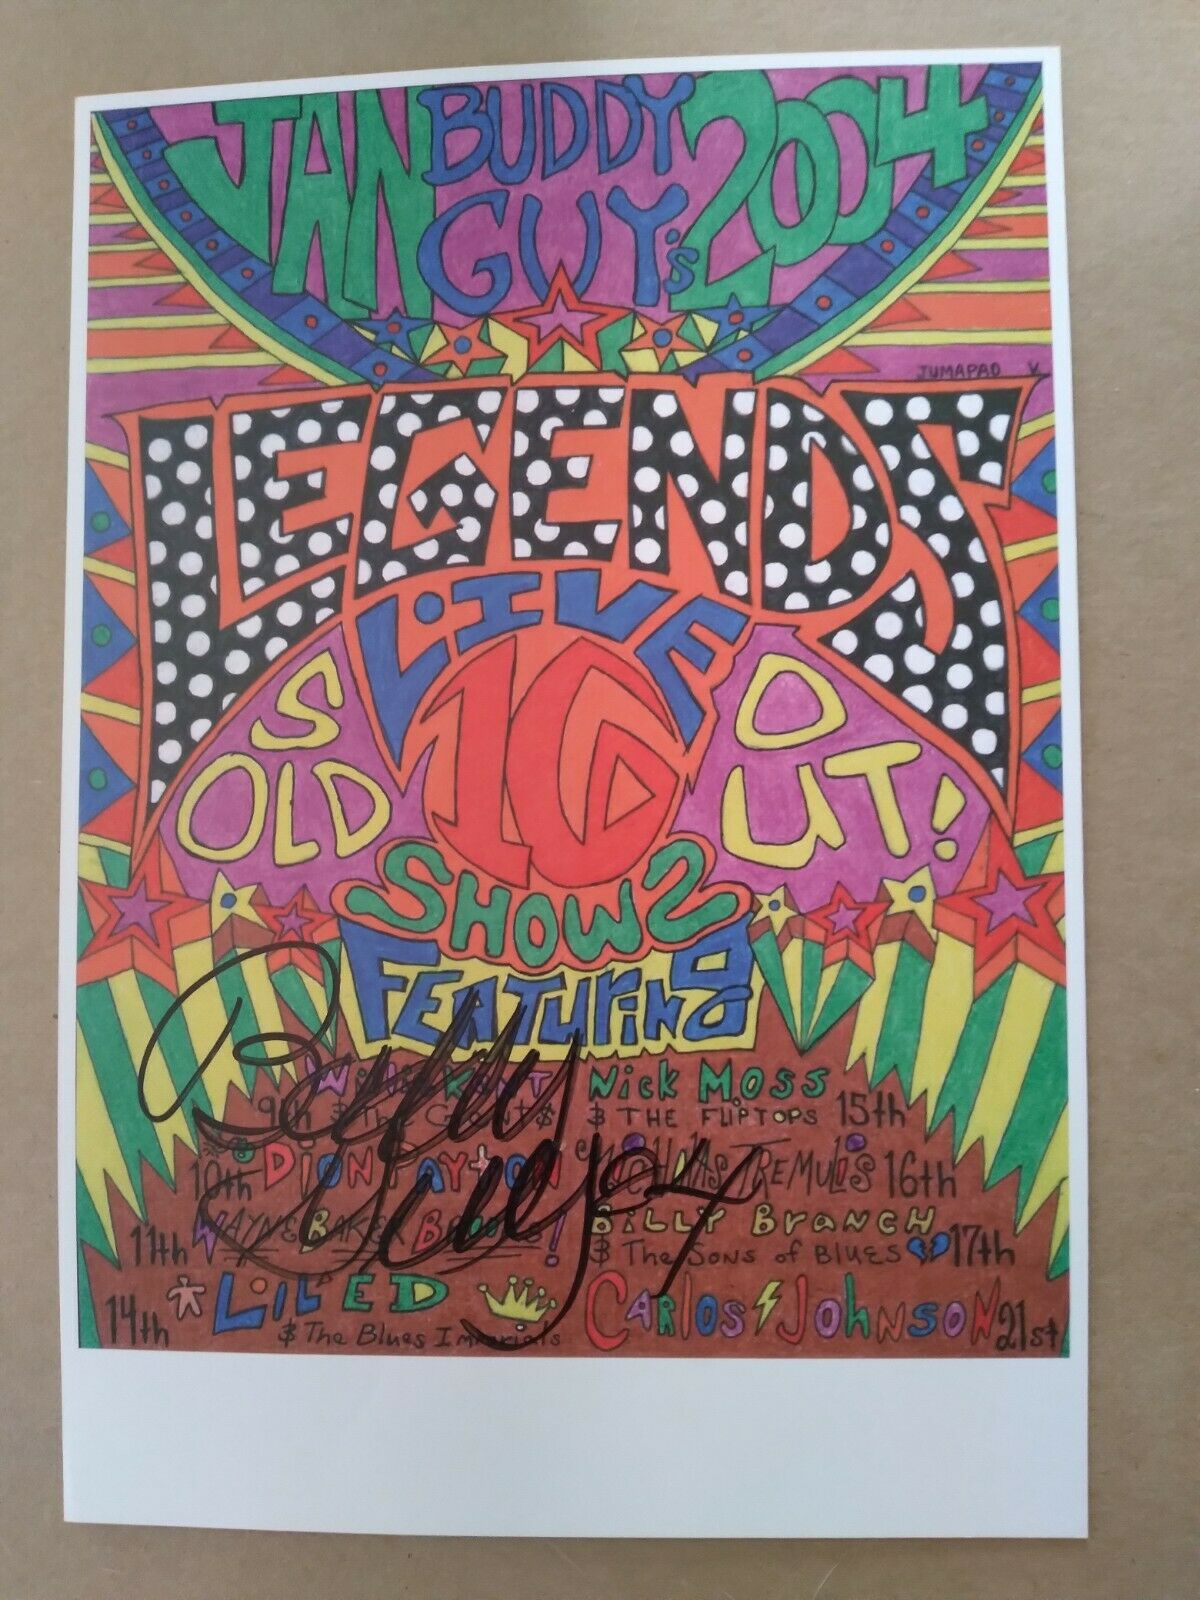 JAN BUDDY GUY'S 2004
JUMAPAO V.
LEGENDS
LIVE
SOLD 16 OUT!
SHOWS
FEATURING
9th Willie Kent & The Gents
Nick Moss & THE FLIPTOPS 15th
10th DION PAYTON
NICHOLAS TREMULIS 16th
11th WAYNE BAKER BROOKS!
BILLY BRANCH & The Sons of Blues 17th
14th LIL' ED & The Blues Imperials
CARLOS JOHNSON 21st
Buddy Guy 04